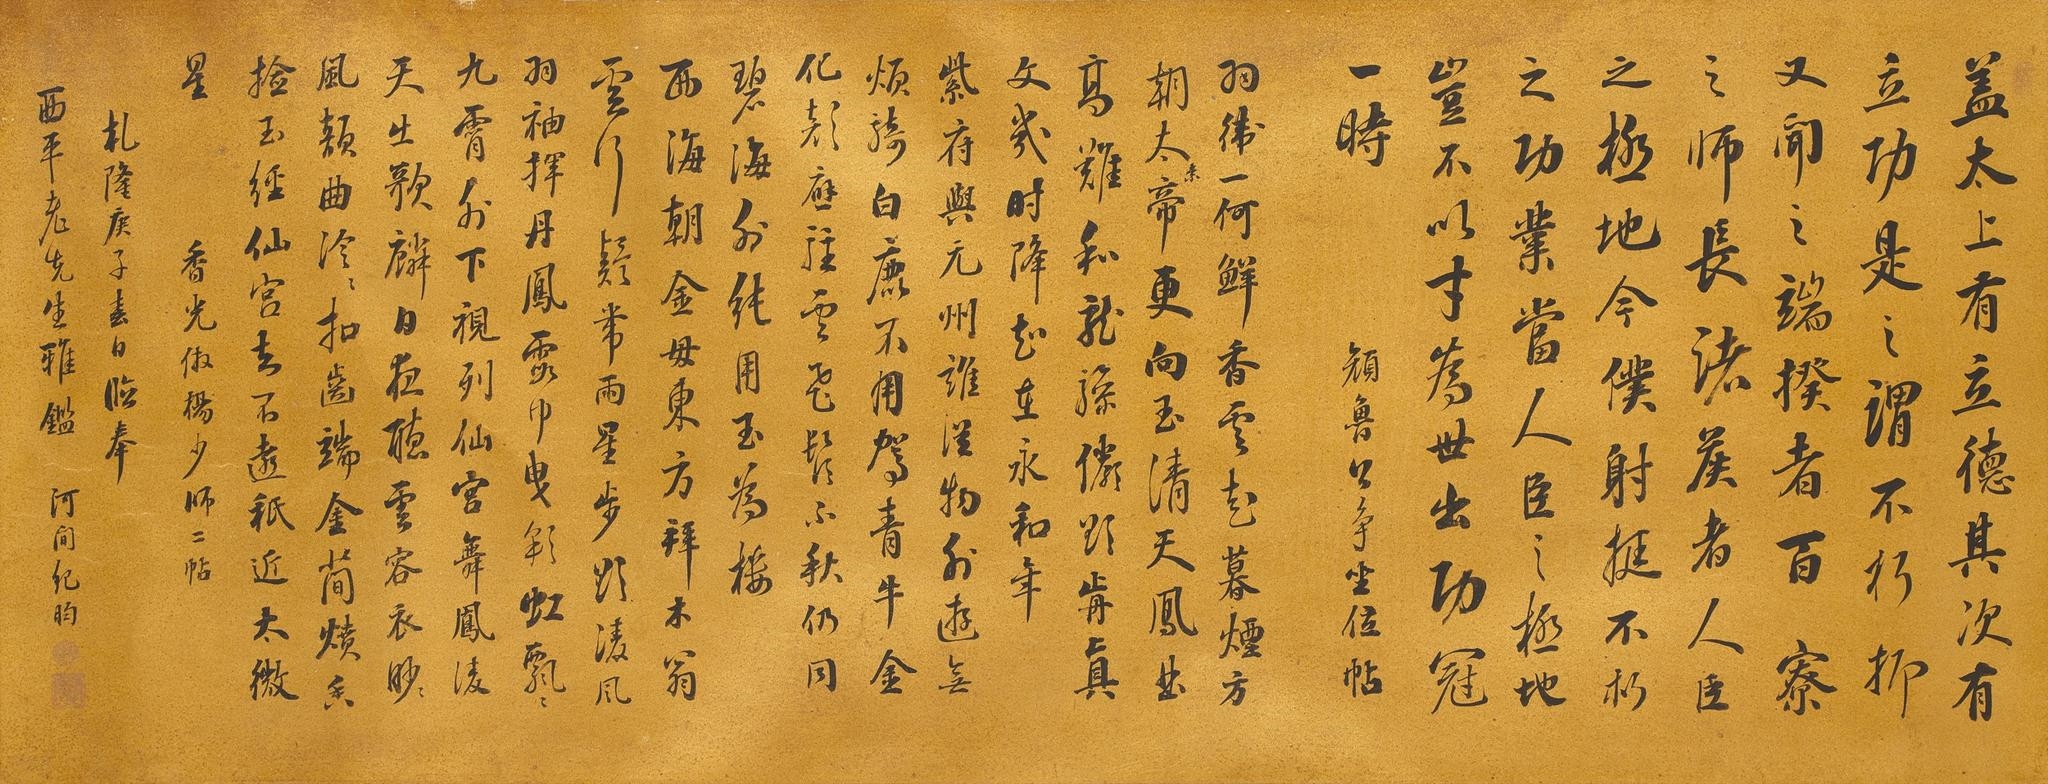 蓋太上有立德其次有
立功是之謂不朽抑
又聞之端揆者百寮
之師長諸侯者人臣
之極地今僕射挺不朽
之功業當人臣之極地
豈不以才為世出功冠
一時
顏魯公爭坐位帖
羽衛一何鮮香雲起暮煙方
朝太素帝更向玉清天鳳曲
高難和龍驂儼時真
文幾時降知在永和年
紫府與元州誰從物外遊無
煩騎白鹿不用駕青牛金
化顏應駐雲飛鬢不秋仍同
碧海外純用玉為樓
西海朝金母東方拜木翁
雲行疑帶雨星步欲凌風
羽袖揮丹鳳霞巾曳彩虹飄飄
九霄外下視列仙宮舞鳳凌
天出歌麟日夜聽雲容衣眇眇
風韻曲泠泠扣齒端金簡焚香
檢玉經仙宮去不遠秖近太微
星
香光倣楊少師二帖
乾隆庚子春日臨奉
西平老先生雅鑑
河間紀昀